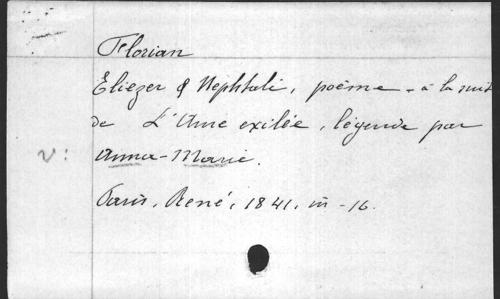 Florian
Eliezer & Nephtali, poème - à la suite
de L'Ame exilée, légende par
v: Anna-Marie.
Paris, René, 1841, in-16.